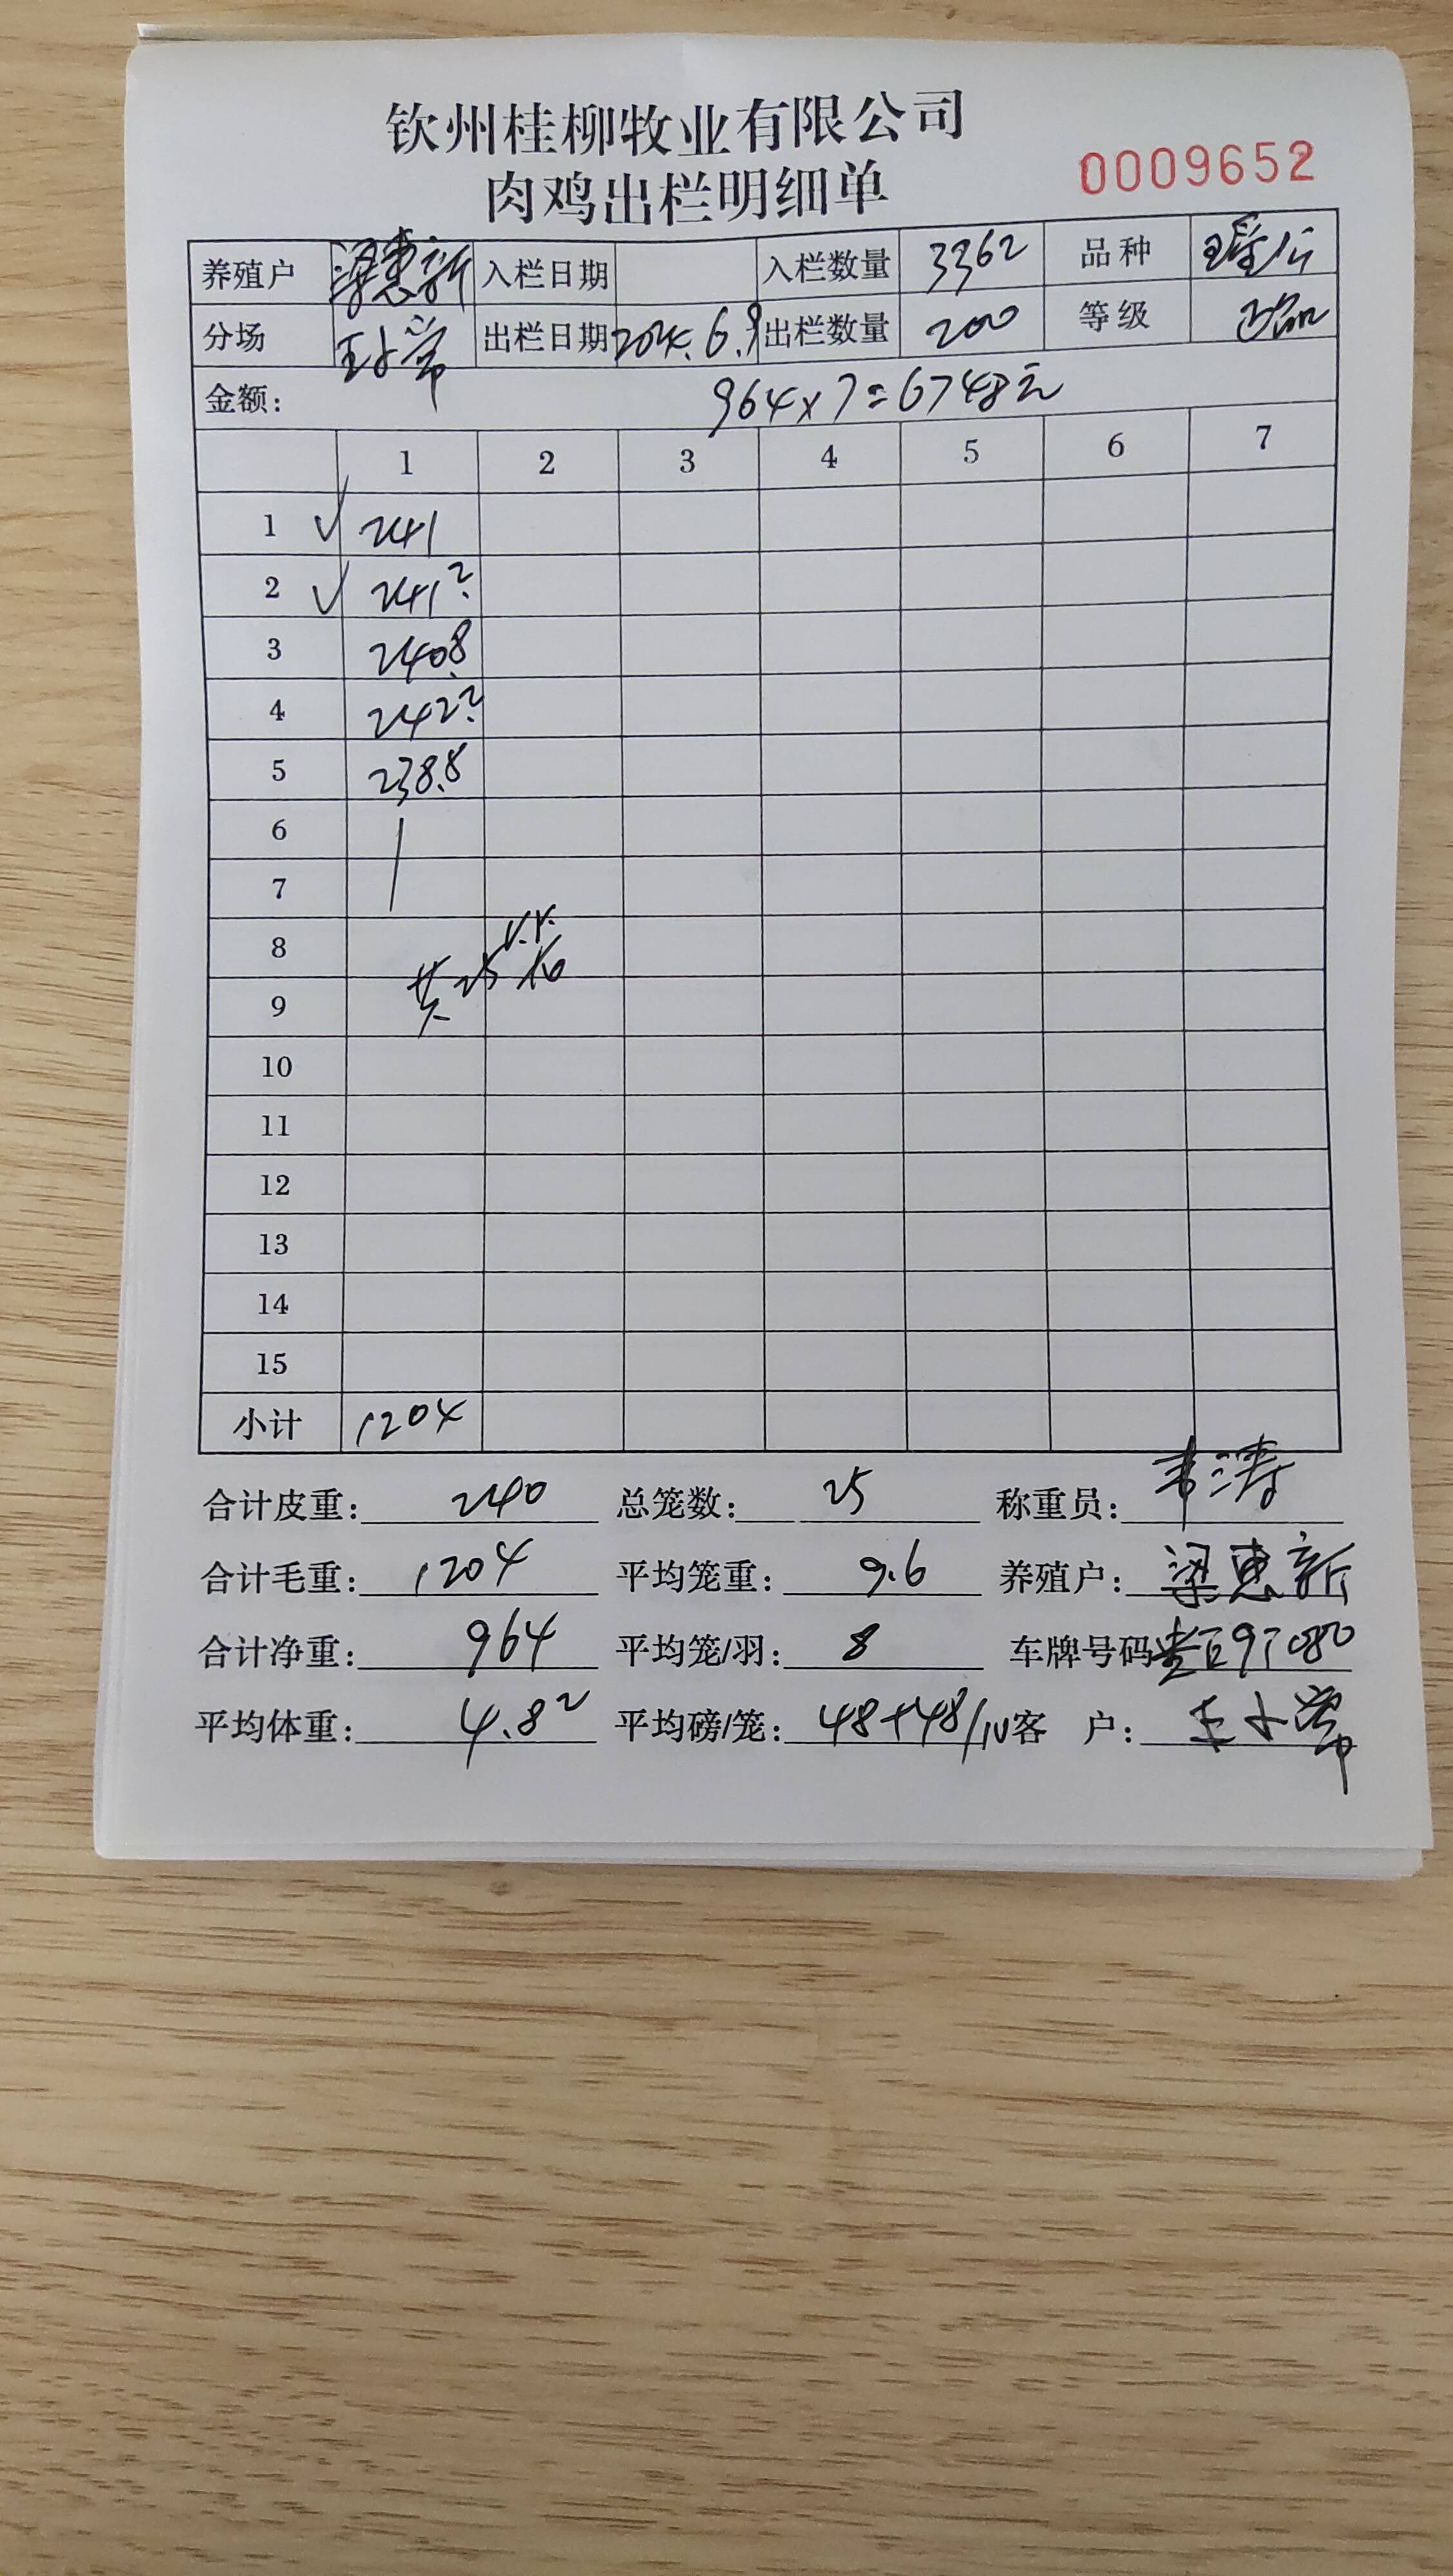 钦州桂柳牧业有限公司
肉鸡出栏明细单
0009652
养殖户 梁惠新 入栏日期 入栏数量 3362 品种
分场 出栏日期 出栏数量 200 等级 正品
金额: 964×7=6748元
1 2 3 4 5 6 7
1 241
2 241.2
3 240.8
4 242.2
5 238.8
6
7
8
9 共25
10
11
12
13
14
15
小计 1204
合计皮重: 240 总笼数: 25 称重员: 韦涛
合计毛重: 1204 平均笼重: 9.6 养殖户: 梁惠新
合计净重: 964 平均笼/羽: 8 车牌号码
平均体重: 4.82 平均磅/笼: 48+48/10 客 户: